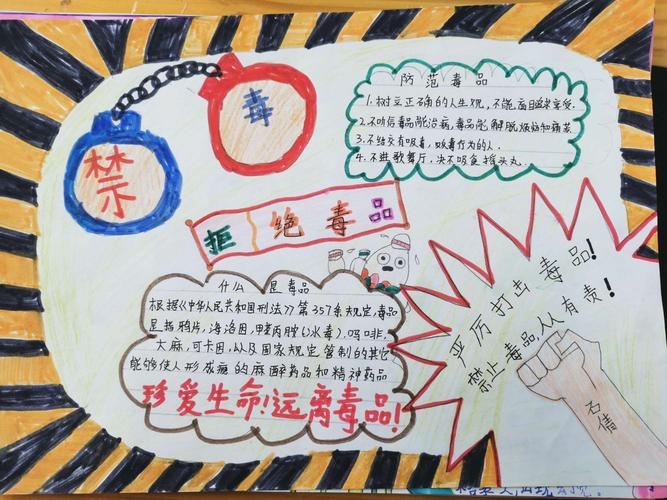 禁
毒
防范毒品
1.树立正确的人生观,不能盲目追求享受.
2.不听信毒品能治病,毒品能解脱烦恼和痛苦
3.不结交有吸毒,贩毒行为的人.
4.不进歌舞厅,决不吸食摇头丸.
拒绝毒品
什么是毒品
根据《中华人民共和国刑法》第357条规定,毒品
是指鸦片,海洛因,甲基苯丙胺(冰毒),吗啡,
大麻,可卡因,以及国家规定管制的其它
能够使人形成瘾的麻醉药品和精神药品
珍爱生命!远离毒品!
严厉打击毒品!
禁止毒品,人人有责!
石倩